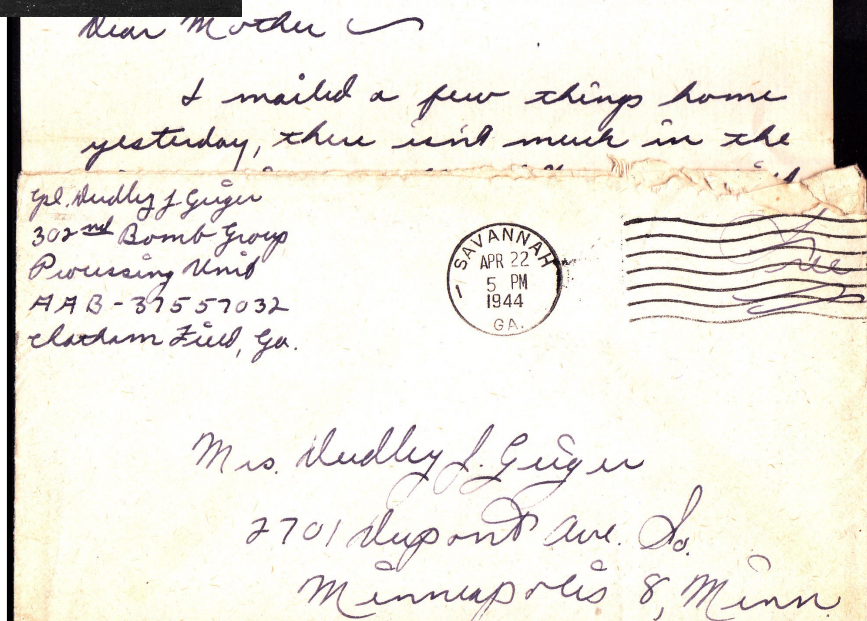 Dear Mother
I mailed a few things home
yesterday, there isn't much in the
Cpl. Dudley J Geiger
302nd Bomb Group
Processing Unit
AAB-37557032
Chatham Field, Ga.
SAVANNAH
APR 22
5 PM
1944
GA.
1
Free
Mrs. Dudley J. Geiger
2701 Dupont Ave. So.
Minneapolis 8, Minn.